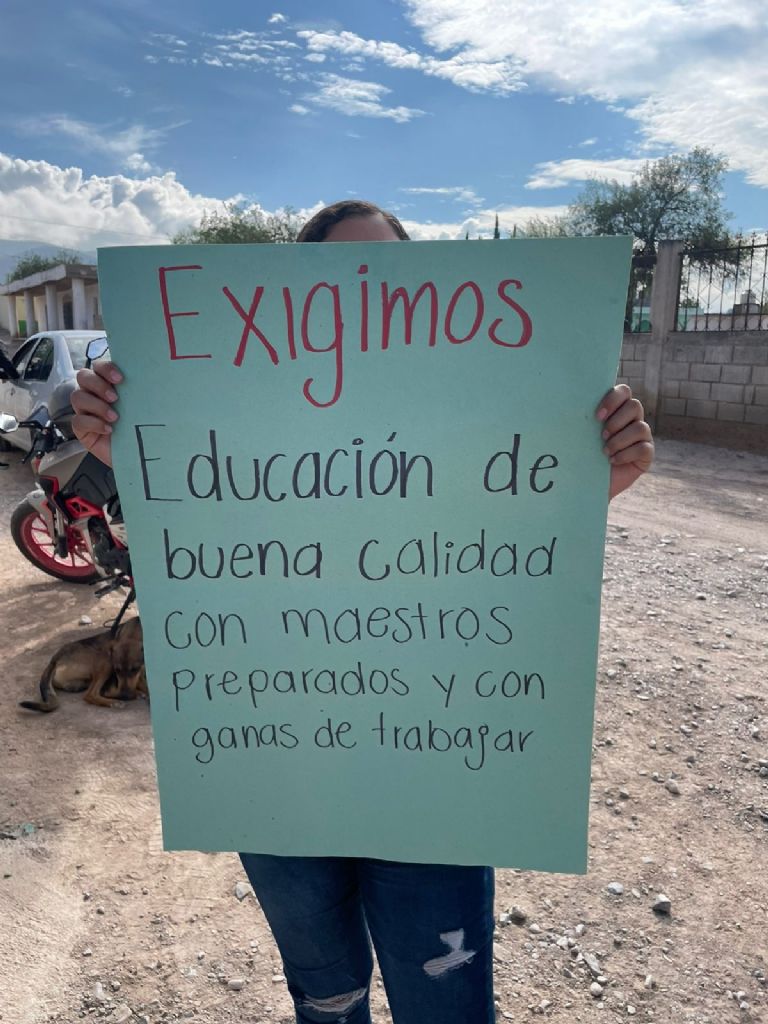 Exigimos
Educación de
buena calidad
con maestros
preparados y con
ganas de trabajar